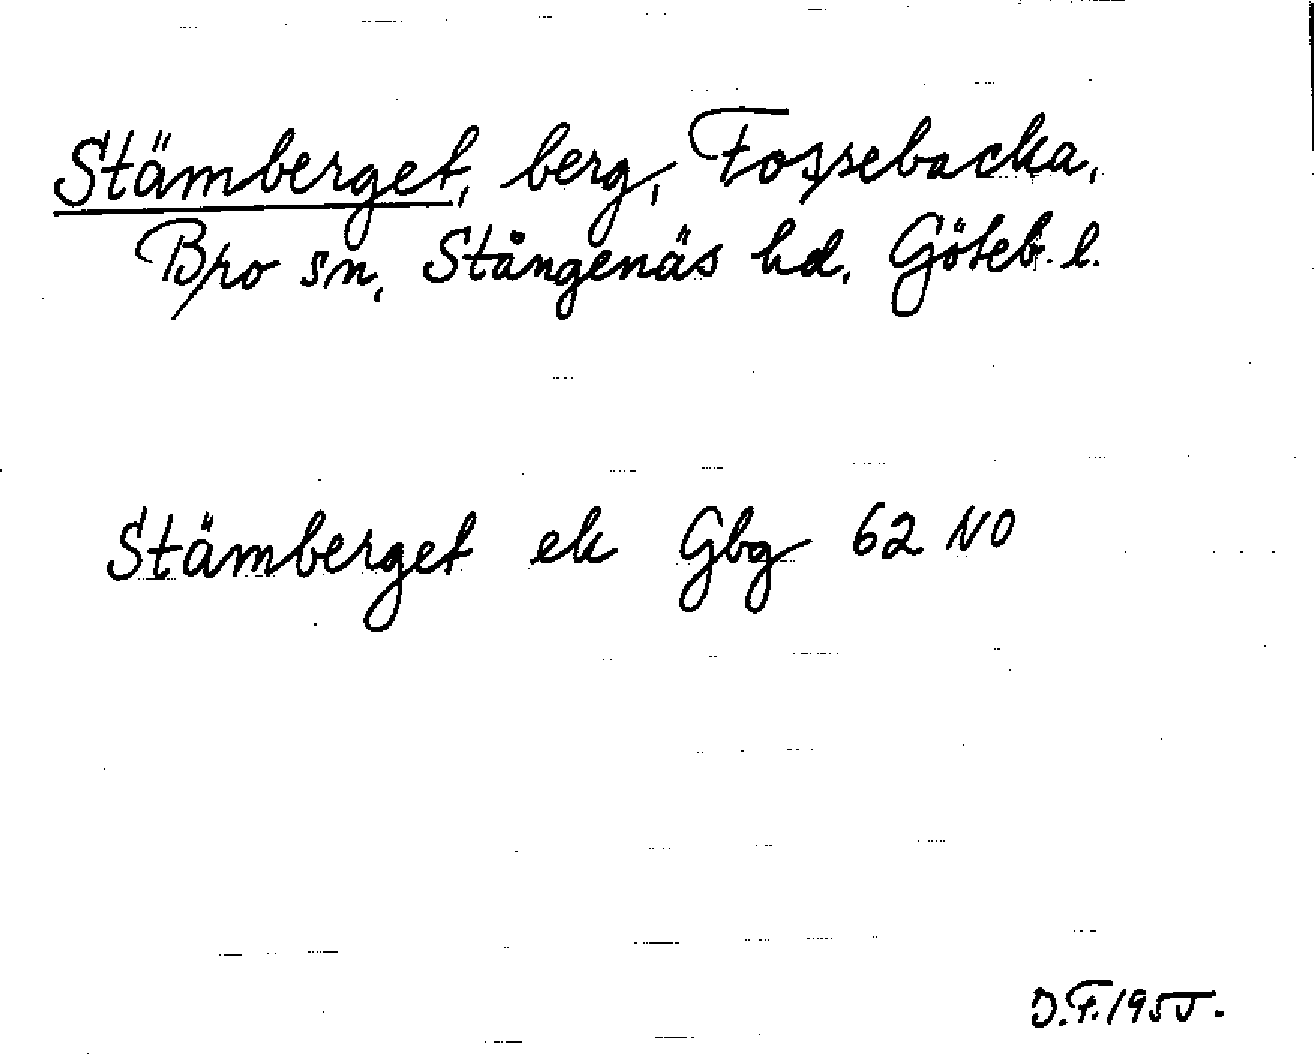 Stämberget, berg, Fossebacka,
Bro sn, Stångenäs hd, Göteb. l.
Stämberget ek Gbg 62 NO
D.F. 1955.